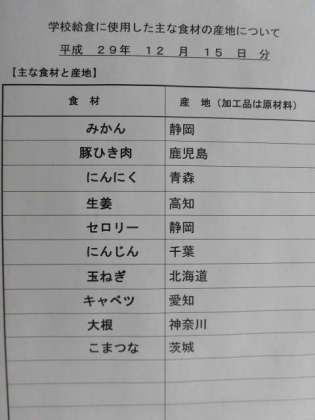 学校給食に使用した主な食材の産地について
平成 29年 12 月 15 日 分
【主な食材と産地】
食 材 産 地（加工品は原材料）
みかん 静岡
豚ひき肉 鹿児島
にんにく 青森
生姜 高知
セロリー 静岡
にんじん 千葉
玉ねぎ 北海道
キャベツ 愛知
大根 神奈川
こまつな 茨城